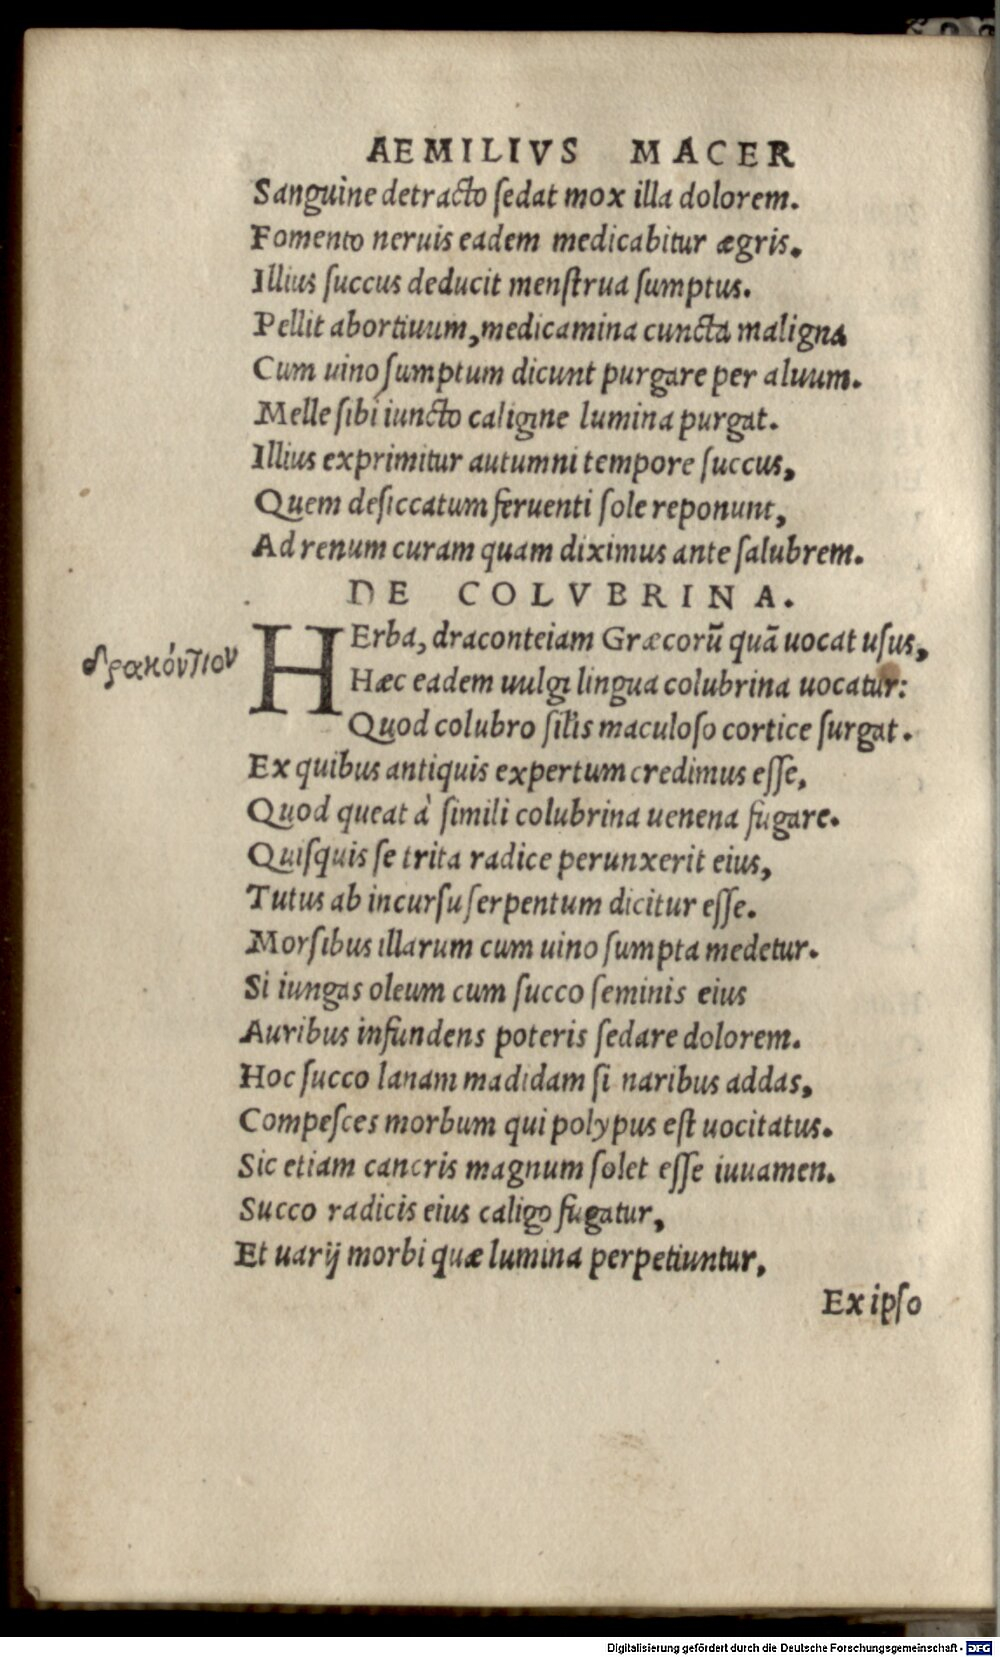 AEMILIVS MACER
Sanguine detracto ſedat mox illa dolorem.
Fomento neruis eadem medicabitur ægris.
Illius ſuccus deducit menſtrua ſumptus.
Pellit abortiuum, medicamina cuncta maligna
Cum uino ſumptum dicunt purgare per aluum.
Melle ſibi iuncto caligine lumina purgat.
Illius exprimitur autumni tempore ſuccus,
Quem deſiccatum feruenti ſole reponunt,
Ad renum curam quam diximus ante ſalubrem.
DE COLVBRINA.
HErba, draconteiam Græcorū quā uocat uſus,
δρακόντιον
Hæc eadem uulgi lingua colubrina uocatur:
Quod colubro ſilis maculoſo cortice ſurgat.
Ex quibus antiquis expertum credimus eſſe,
Quod queat à ſimili colubrina uenena fugare.
Quiſquis ſe trita radice perunxerit eius,
Tutus ab incurſu ſerpentum dicitur eſſe.
Morſibus illarum cum uino ſumpta medetur.
Si iungas oleum cum ſucco ſeminis eius
Auribus infundens poteris ſedare dolorem.
Hoc ſucco lanam madidam ſi naribus addas,
Compeſces morbum qui polypus eſt uocitatus.
Sic etiam cancris magnum ſolet eſſe iuuamen.
Succo radicis eius caligo fugatur,
Et uarij morbi quæ lumina perpetiuntur,
Ex ipſo
Digitalisierung gefördert durch die Deutsche Forschungsgemeinschaft - DFG